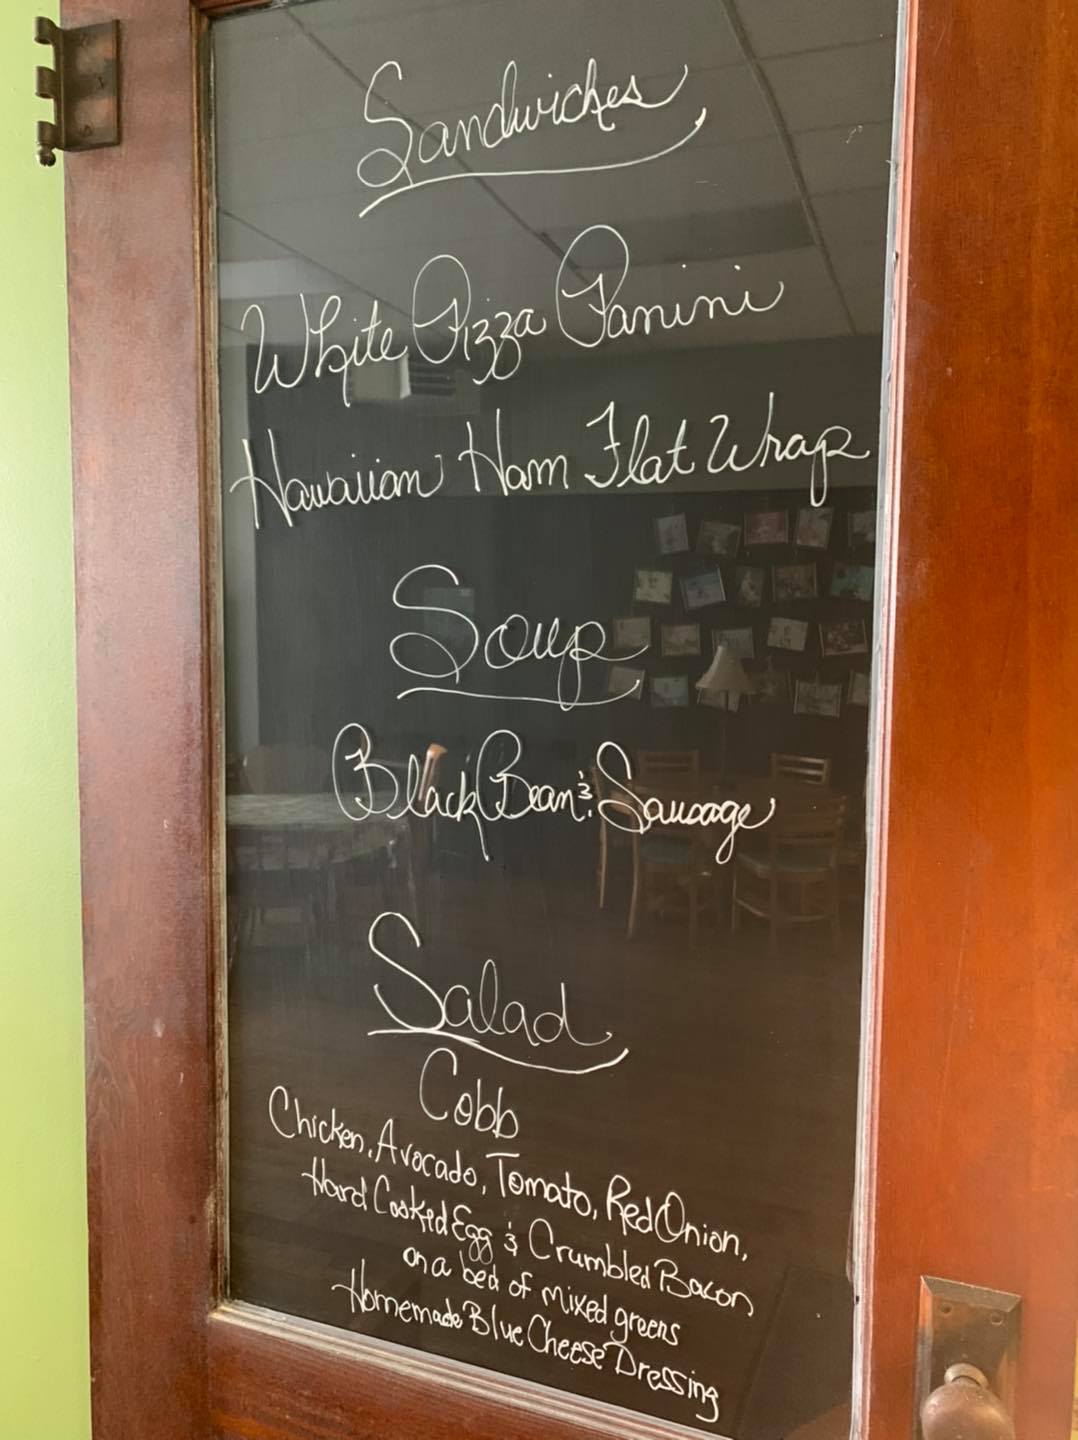 Sandwiches
White Pizza Panini
Hawaiian Ham Flat Wrap
Soup
Black Bean & Sausage
Salad
Cobb
Chicken, Avocado, Tomato, Red Onion,
Hard Cooked Egg & Crumbled Bacon
on a bed of mixed greens
Homemade Blue Cheese Dressing